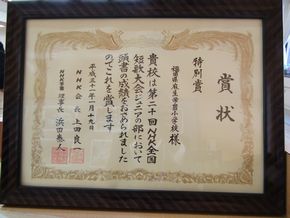 賞状
特別賞
小学校様
貴校は第二十回NHK全国
短歌大会ジュニアの部において
頭書の成績をおさめられました
のでこれを賞します
平成三十一年一月十九日
NHK会長 上田良一
NHK学園 理事長 浜田泰人